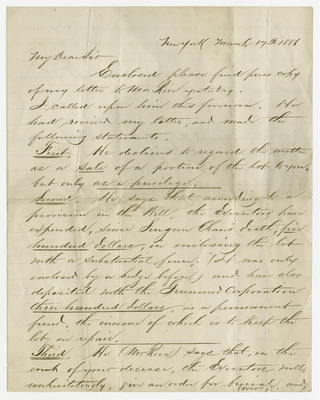 New York March 17th 1886
My Dear Sir
Enclosed please find press copy
of my letter to Mr Rice yesterday.
I called upon him this forenoon. He
had received my letter, and made the
following statements.
First, He declines to regard the matter
as a sale of a portion of the lot to you,
but only as a privilege.
Second, He says that according to a
provision in the Will, the Executors have
expended, since Simpson Chan's death, five
hundred dollars, in enclosing the lot
with a substantial fence, (It was only
enclosed by a hedge before) and have also
deposited with the Greenwood Corporation
three hundred dollars, as a permanent
fund, the income of which is to keep the
lot in repair.
Third, He (Mr Rice) says that, in the
event of your decease, the Executors will,
unhesitatingly, give an order for burial, and
(over)